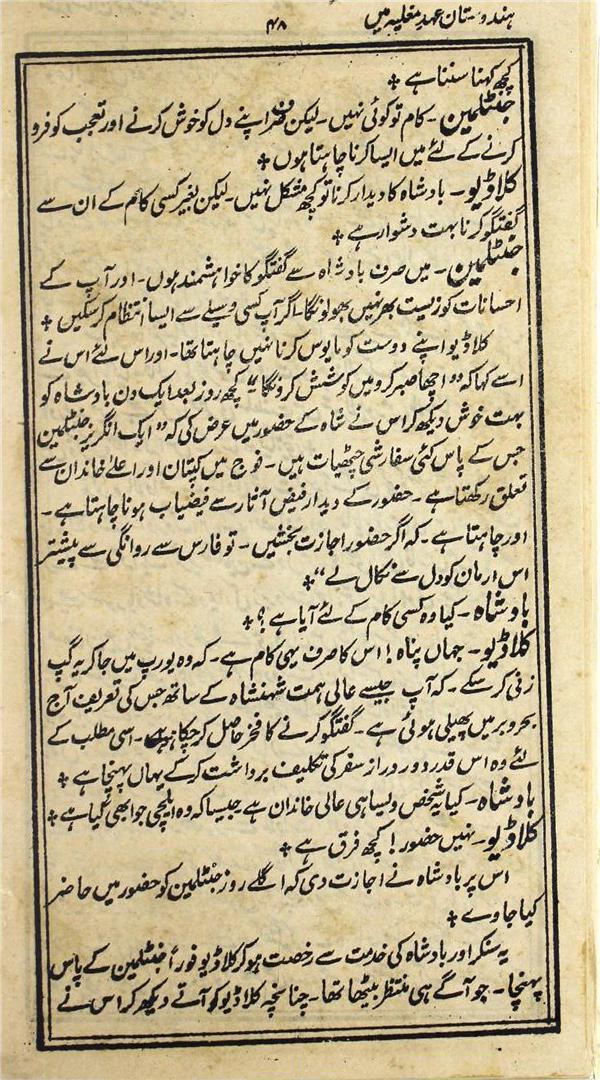 ہندوستان عہد مغلیہ میں
۴۸
کچھ کہنا سننا ہے ٭
جنٹلمین۔ کام تو کوئی نہیں۔ لیکن صرف اپنے دل کو خوش کرنے اور تعجب کو فرو
کرنے کے لئے میں ایسا کرنا چاہتا ہوں ٭
کلاڈیو۔ بادشاہ کا دیدار کرنا تو کچھ مشکل نہیں۔ لیکن بغیر کسی کام کے ان سے
گفتگو کرنا بہت دشوار ہے ٭
جنٹلمین۔ میں صرف بادشاہ سے گفتگو کا خواہشمند ہوں۔ اور آپ کے
احسانات کو زیست بھر نہیں بھولونگا۔ اگر آپ کسی وسیلے سے ایسا انتظام کر سکیں ٭
کلاڈیو اپنے دوست کو مایوس کرنا نہیں چاہتا تھا۔ اور اس لئے اس نے
اسے کہا کہ ”اچھا صبر کرو میں کوشش کرونگا“ کچھ روز بعد ایک دن بادشاہ کو
بہت خوش دیکھ کر اس نے شاہ کے حضور میں عرض کی کہ ”ایک انگریز جنٹلمین
جس کے پاس کئی سفارشی چٹھیات ہیں۔ فوج میں کپتان اور اعلےٰ خاندان سے
تعلق رکھتا ہے۔ حضور کے دیدار فیض آثار سے فیضیاب ہونا چاہتا ہے۔
اور چاہتا ہے۔ کہ اگر حضور اجازت بخشیں۔ تو فارس سے روانگی سے پیشتر
اس ارمان کو دل سے نکال لے“ ٭
بادشاہ۔ کیا وہ کسی کام کے لئے آیا ہے؟ ٭
کلاڈیو۔ جہاں پناہ! اس کا صرف یہی کام ہے۔ کہ وہ یورپ میں جا کر یہ گپ
زنی کر سکے۔ کہ آپ جیسے عالی ہمت شہنشاہ کے ساتھ جس کی تعریف آج
بحر و بر میں پھیلی ہوئی ہے۔ گفتگو کرنے کا فخر حاصل کر چکا ہے۔ اسی مطلب کے
لئے وہ اس قدر دور دراز سفر کی تکلیف برداشت کر کے یہاں پہنچا ہے ٭
بادشاہ۔ کیا یہ شخص ویسا ہی عالی خاندان ہے جیسا کہ وہ ایلچی جو ابھی گیا ہے ٭
کلاڈیو۔ نہیں حضور! کچھ فرق ہے ٭
اس پر بادشاہ نے اجازت دی کہ اگلے روز جنٹلمین کو حضور میں حاضر
کیا جاوے ٭
یہ سنکر اور بادشاہ کی خدمت سے رخصت ہو کر کلاڈیو فوراً جنٹلمین کے پاس
پہنچا۔ جو آگے ہی منتظر بیٹھا تھا۔ چنانچہ کلاڈیو کو آتے دیکھ کر اس نے